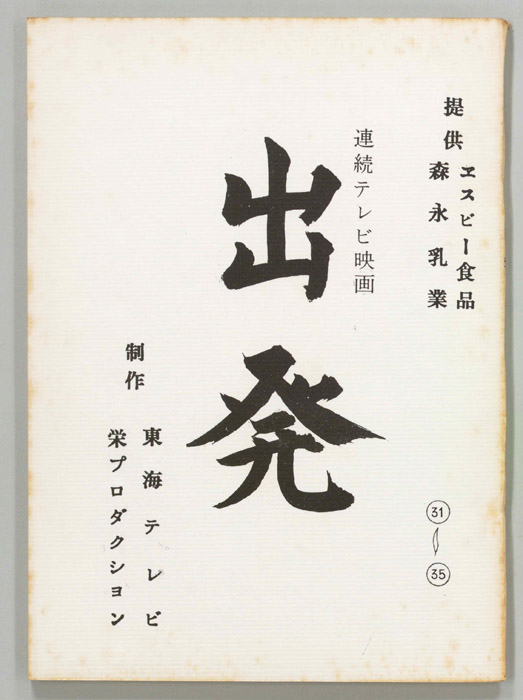 提供
ヱスビー食品
森永乳業
連続テレビ映画
出発
㉛
〜
㉟
制作
東海テレビ
栄プロダクション